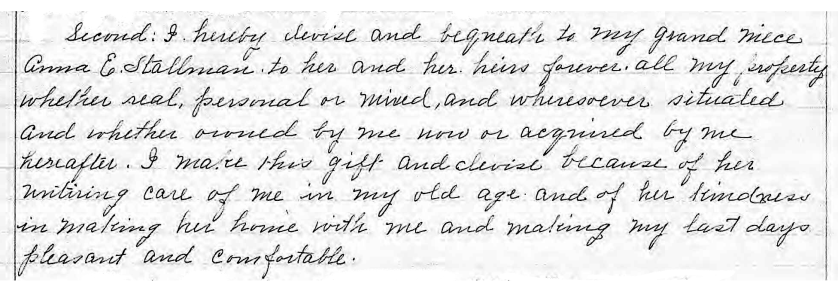 Second: I hereby devise and bequeath to my grand niece
Anna E. Stallman. to her and her heirs forever. all my property
whether real, personal or mixed, and wheresoever situated
and whether owned by me now or acquired by me
hereafter. I make this gift and devise because of her
untiring care of me in my old age and of her kindness
in making her home with me and making my last days
pleasant and comfortable.